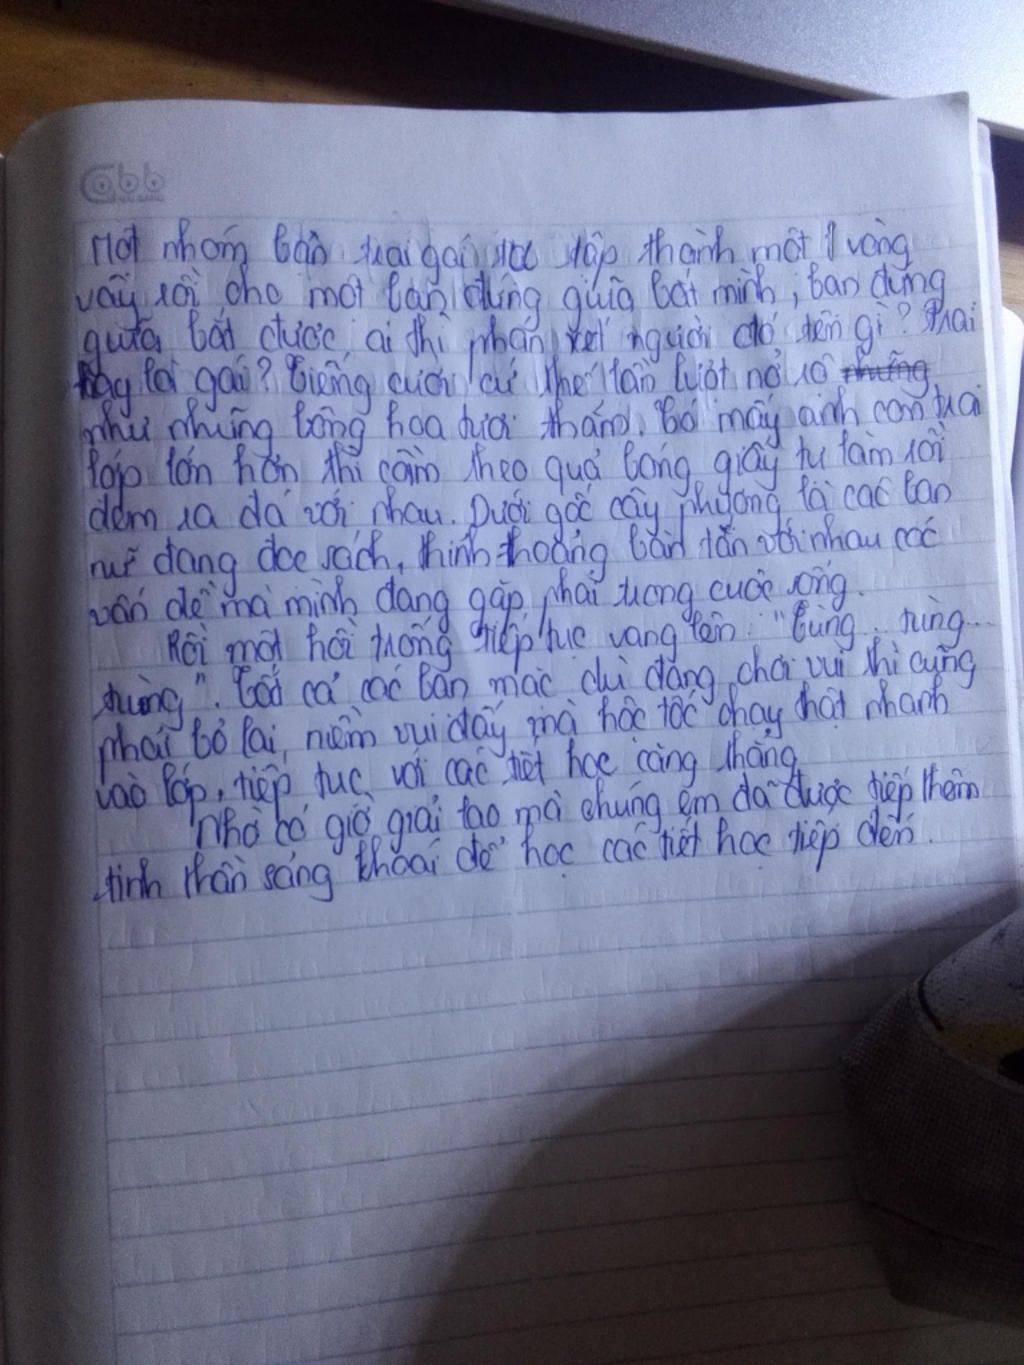 Cabb
Một nhóm bạn trai gái tập thành một vòng
vây rồi cho một bạn đứng giữa bắt mình, bạn đứng
giữa bắt được ai thì phán xét người đó tên gì? Trai
hay là gái? Tiếng cười cứ thế lần lượt nở rộ những
như những bông hoa tươi thắm. Có mấy anh con trai
lớp lớn hơn thì cầm theo quả bóng giấy tự làm rồi
đem ra đá với nhau. Dưới gốc cây phượng là các bạn
nữ đang đọc sách, thỉnh thoảng bàn tán với nhau các
vấn đề mà mình đang gặp phải trong cuộc sống.
Rồi một hồi trống tiếp tục vang lên: "Tùng.. tùng...
tùng". Tất cả các bạn mặc dù đang chơi vui thì cũng
phải bỏ lại niềm vui đấy mà hộc tốc chạy thật nhanh
vào lớp, tiếp tục với các tiết học căng thẳng
Nhờ có giờ giải lao mà chúng em đã được tiếp thêm
tinh thần sảng khoái để học các tiết học tiếp đến.